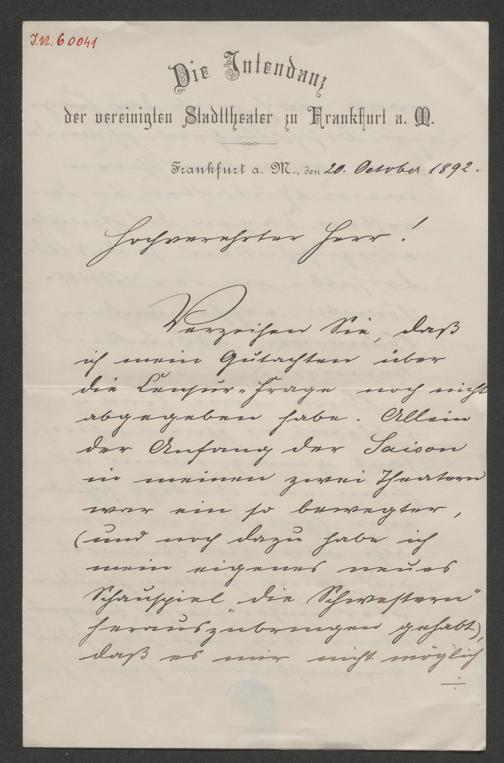 I.N. 60041
Die Intendanz
der vereinigten Stadttheater zu Frankfurt a. M.
Frankfurt a. M., den 20. October 1892.
Hochverehrter Herr!
Verzeihen Sie, daß
ich mein Gutachten über
die Censur-Frage noch nicht
abgegeben habe. Allein
der Anfang der Saison
in meinen zwei Theatern
war ein so bewegter,
(und noch dazu habe ich
mein eigenes neues
Schauspiel „die Schwestern"
herauszubringen gehabt),
daß es mir nicht möglich